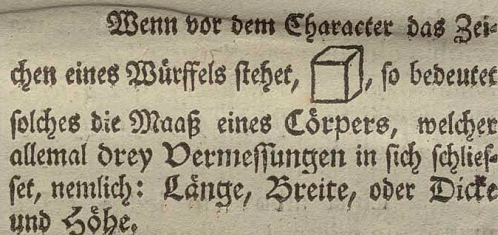 Wenn vor dem Character das Zei-
chen eines Würffels stehet, , so bedeutet
solches die Maaß eines Cörpers, welcher
allemal drey Vermessungen in sich schlies-
set, nemlich: Länge, Breite, oder Dicke
und Höhe.